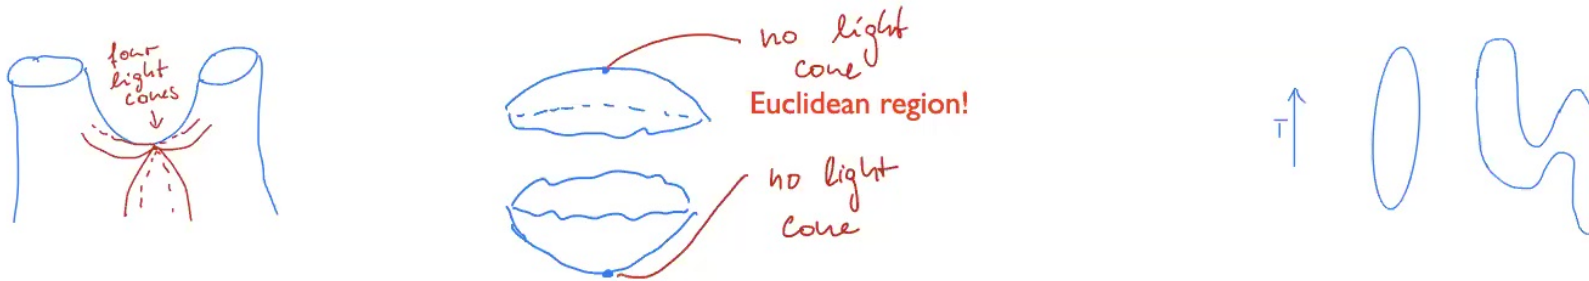 four
light
cones
no light
cone
Euclidean region!
no light
cone
T